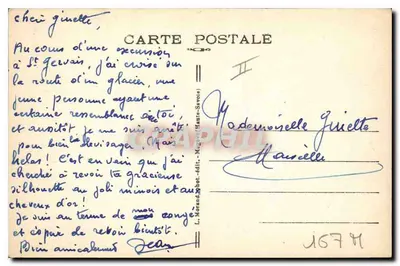 Chère Ginette,
Au cours d'une excursion
à St Gervais, j'ai croisé sur
la route d'un glacier, une
jeune personne ayant une
certaine ressemblance à toi,
et aussitôt, je me suis arrêté
pour bien la dévisager. Mais
helas! C'est en vain que j'ai
cherché à revoir ta gracieuse
silhouette au joli minois et aux
cheveux d'or!
Je suis au terme de mon congé
et espère te revoir bientôt.
Bien amicalement Jean
CARTE POSTALE
II
Mademoiselle Ginette
Marseille
167 M